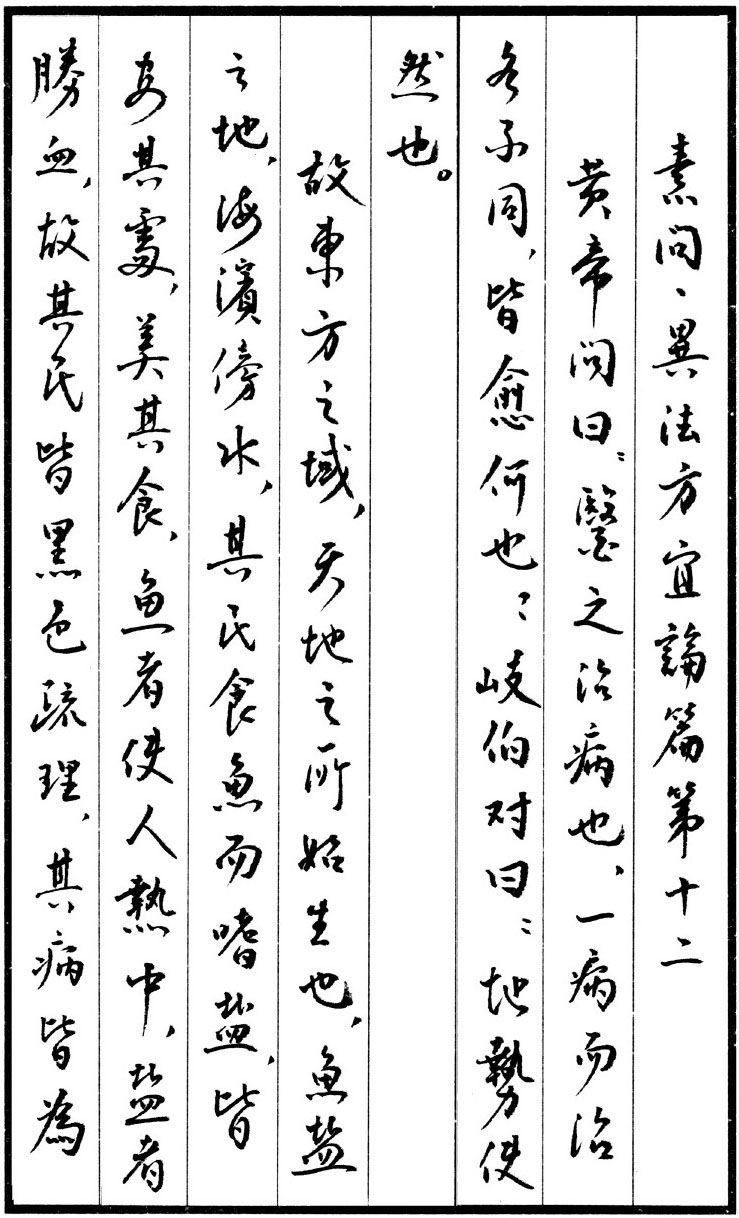 素问、異法方宜論篇第十二
黄帝问曰：醫之治病也，一病而治
各不同，皆愈何也：岐伯对曰：地勢使
然也。
故東方之域，天地之所始生也，魚盐
之地，海濱傍水，其民食魚而嗜盐，皆
安其處，美其食，魚者使人熱中，盐者
勝血，故其民皆黑色疏理，其病皆為